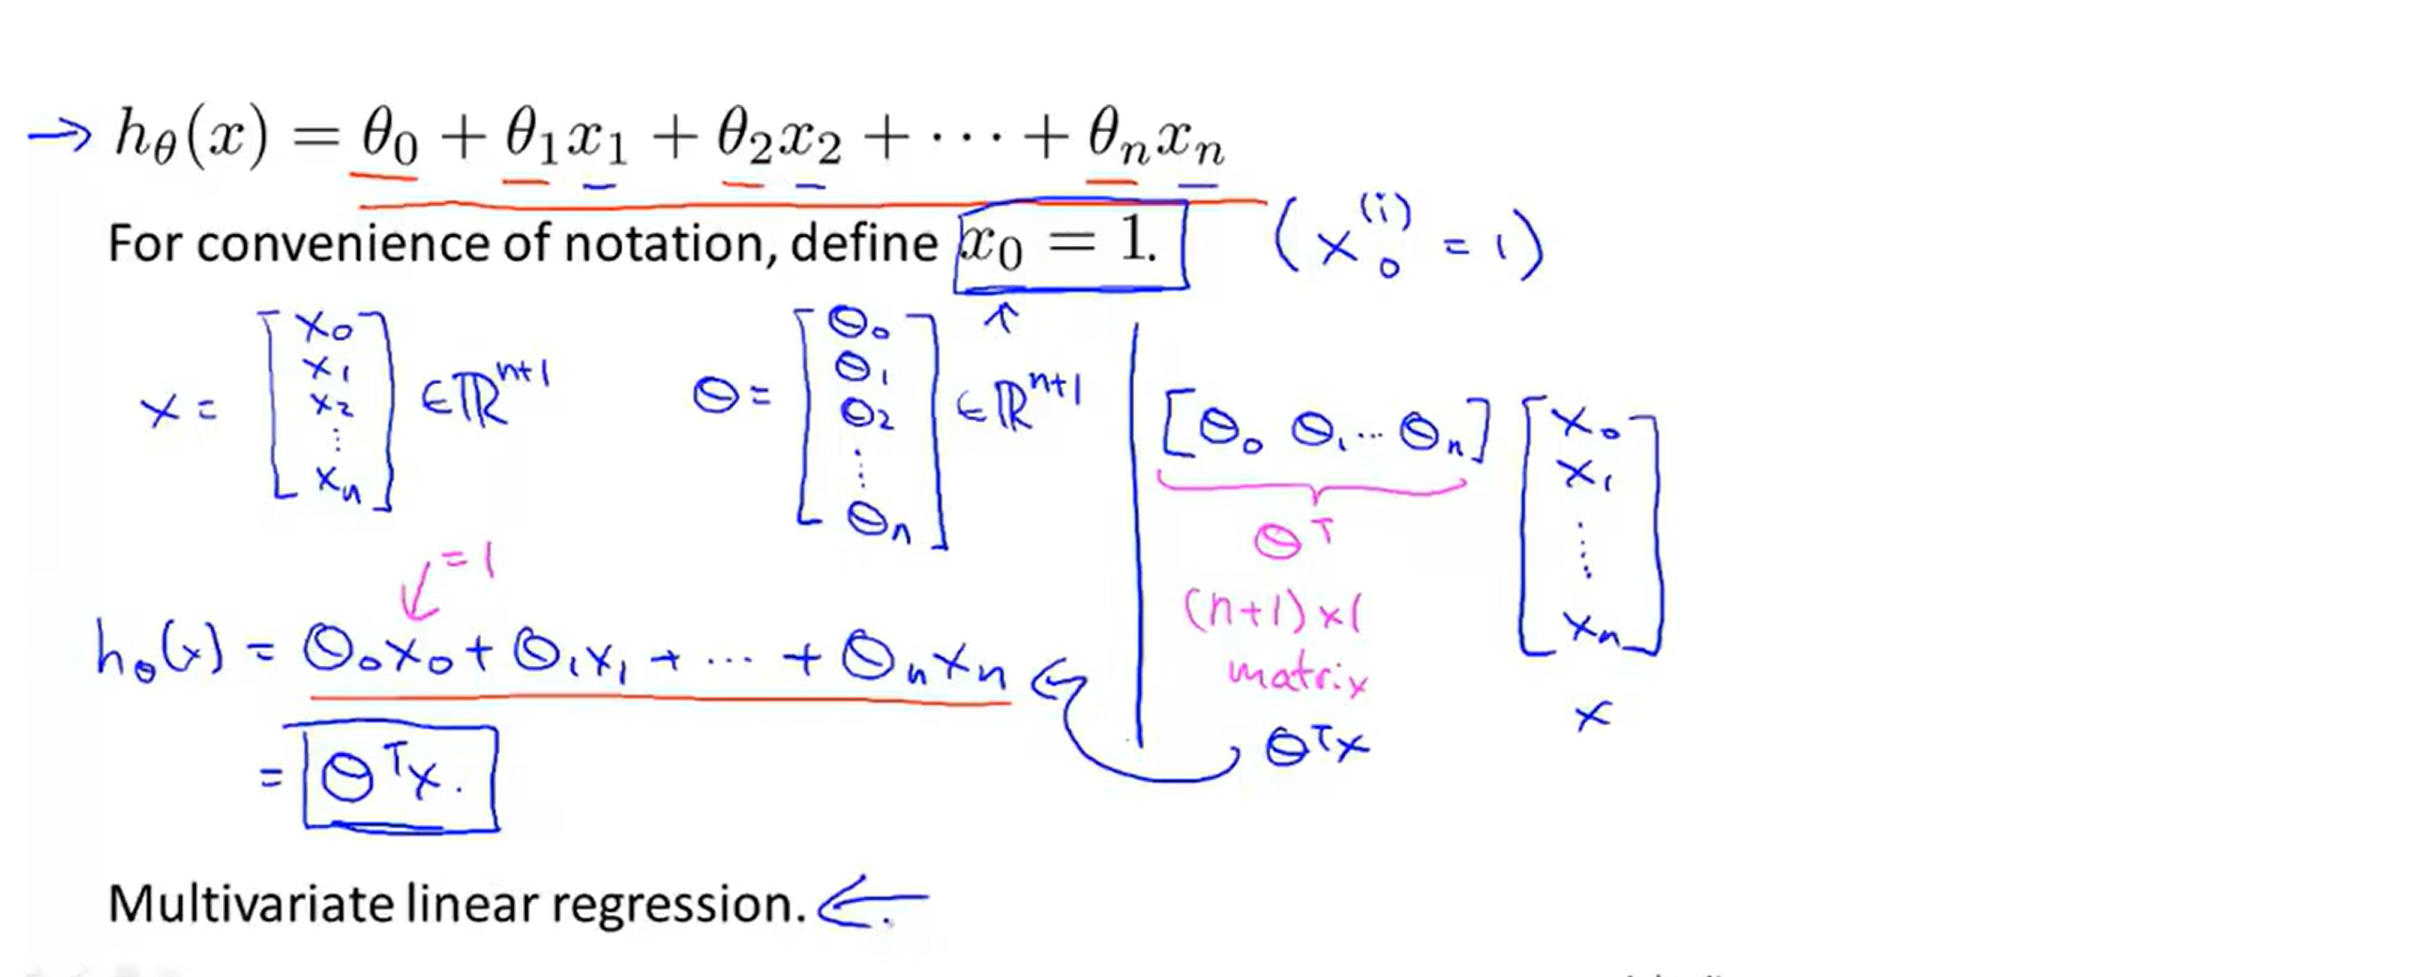 → hθ(x) = θ0 + θ1x1 + θ2x2 + ··· + θnxn
For convenience of notation, define x0 = 1. (x0^(i) = 1)
x = [x0 x1 x2 ⋮ xn] ∈ ℝ^(n+1)
θ = [θ0 θ1 θ2 ⋮ θn] ∈ ℝ^(n+1)
hθ(x) = θ0x0 + θ1x1 + ··· + θnxn
= 1
= θ^T x.
[θ0 θ1 ··· θn] [x0 x1 ⋮ xn]
θ^T
(n+1) x 1
matrix
x
θ^T x
Multivariate linear regression. ←